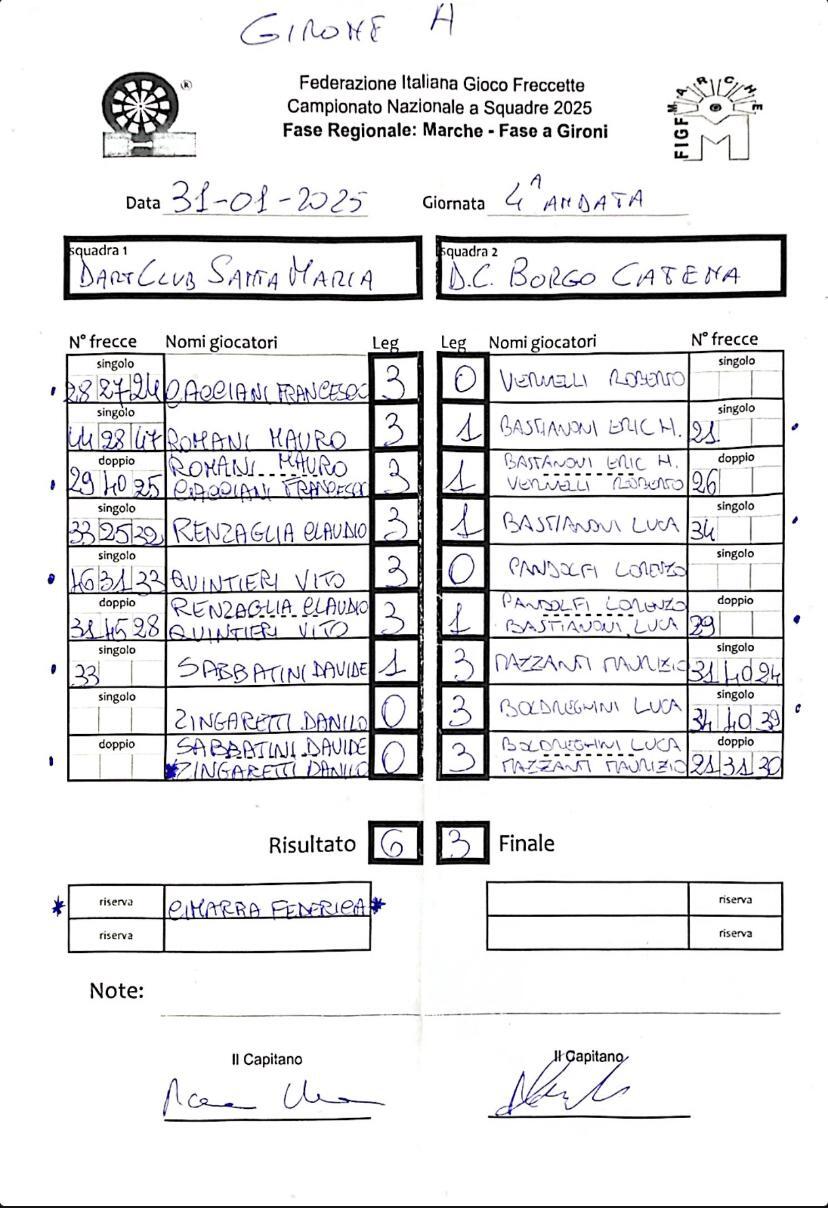 GIRONE A
®
Federazione Italiana Gioco Freccette
Campionato Nazionale a Squadre 2025
Fase Regionale: Marche - Fase a Gironi
FIGF MARCHE M
Data 31-01-2025 Giornata 4ª ANDATA
squadra 1 squadra 2
DART CLUB SANTA MARIA D.C. BORGO CATENA
N° frecce Nomi giocatori Leg Leg Nomi giocatori N° frecce
singolo singolo
28 27 24 CACCIANI FRANCESCO 3 0 VERNELLI ROBERTO
singolo singolo
44 28 47 ROMANI MAURO 3 1 BASTIANONI ERIC M. 21
doppio ROMANI MAURO BASTIANONI ERIC M. doppio
29 40 25 CIACCIANI FRANCESCO 3 1 VERNELLI ROBERTO 26
singolo singolo
33 25 39 RENZAGLIA CLAUDIO 3 1 BASTIANONI LUCA 34
singolo singolo
46 31 33 QUINTIERI VITO 3 0 PANDOLFI LORENZO
doppio RENZAGLIA CLAUDIO PANDOLFI LORENZO doppio
31 45 28 QUINTIERI VITO 3 1 BASTIANONI LUCA 29
singolo singolo
33 SABBATINI DAVIDE 1 3 MAZZANTI MAURIZIO 31 40 24
singolo singolo
ZINGARETTI DANILO 0 3 BOLDREGHINI LUCA 34 40 39
doppio SABBATINI DAVIDE BOLDREGHINI LUCA doppio
*ZINGARETTI DANILO 0 3 MAZZANTI MAURIZIO 21 31 30
Risultato 6 3 Finale
* riserva CIMARRA FEDERICA * riserva
riserva riserva
Note:
Il Capitano Il Capitano